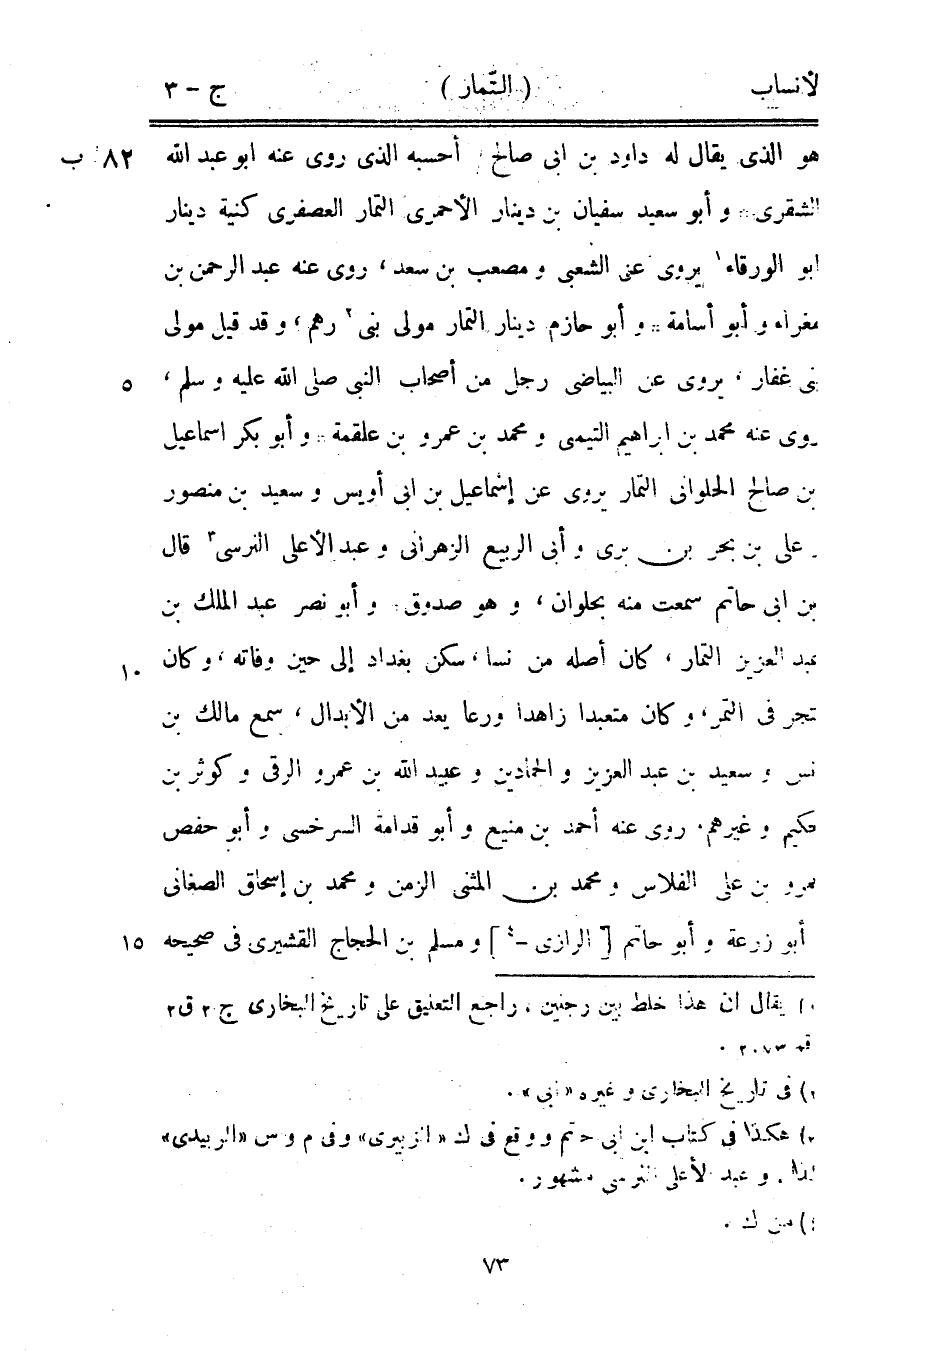 لأنساب ( التّمار ) ج - ٣
هو الذى يقال له داود بن ابى صالح أحسبه الذى روى عنه ابو عبد الله ٨٢ ب
الشقرى . و أبو سعيد سفيان بن دينار الأحمرى التمار العصفرى كنية دينار
ابو الورقاء١ يروى عن الشعبى و مصعب بن سعد، روى عنه عبد الرحمن بن
مغراء و أبو أسامة . و أبو حازم دينار التمار مولى بنى٢ رهم، و قد قيل مولى
بنى غفار، يروى عن البياضى رجل من أصحاب النبى صلى الله عليه و سلم، ٥
روى عنه محمد بن ابراهيم التيمى و محمد بن عمرو بن علقمة . و أبو بكر اسماعيل
بن صالح الحلوانى التمار يروى عن إسماعيل بن ابى أويس و سعيد بن منصور
و على بن بحر بن برى و أبى الربيع الزهرانى و عبد الأعلى النرسى٣ قال
بن ابى حاتم سمعت منه بحلوان، و هو صدوق . و أبو نصر عبد الملك بن
عبد العزيز التمار، كان أصله من نسا، سكن بغداد إلى حين وفاته، و كان ١٠
تجر فى التمر، و كان متعبدا زاهدا ورعا يعد من الأبدال، سمع مالك بن
نس و سعيد بن عبد العزيز و الحمادين و عبيد الله بن عمرو الرقى و كوثر بن
حكيم و غيرهم . روى عنه أحمد بن منيع و أبو قدامة السرخسى و أبو حفص
عمرو بن على الفلاس و محمد بن المثنى الزمن و محمد بن إسحاق الصغانى
أبو زرعة و أبو حاتم [ الرازى -٤ ] و مسلم بن الحجاج القشيرى فى صحيحه ١٥
١) يقال ان هذا خلط بين رجلين . راجع التعليق على تاريخ البخارى ج ٢ ق ٢
قم ٢٠٧٣ .
٢) فى تاريخ البخارى و غيره « ابى » .
٣) هكذا فى كتاب ابن ابى حاتم و وقع فى ك « الزبيرى » وفى م و س « الربيدى »
كذا . و عبد الأعلى النرسى مشهور .
٤) من ك .
٧٣